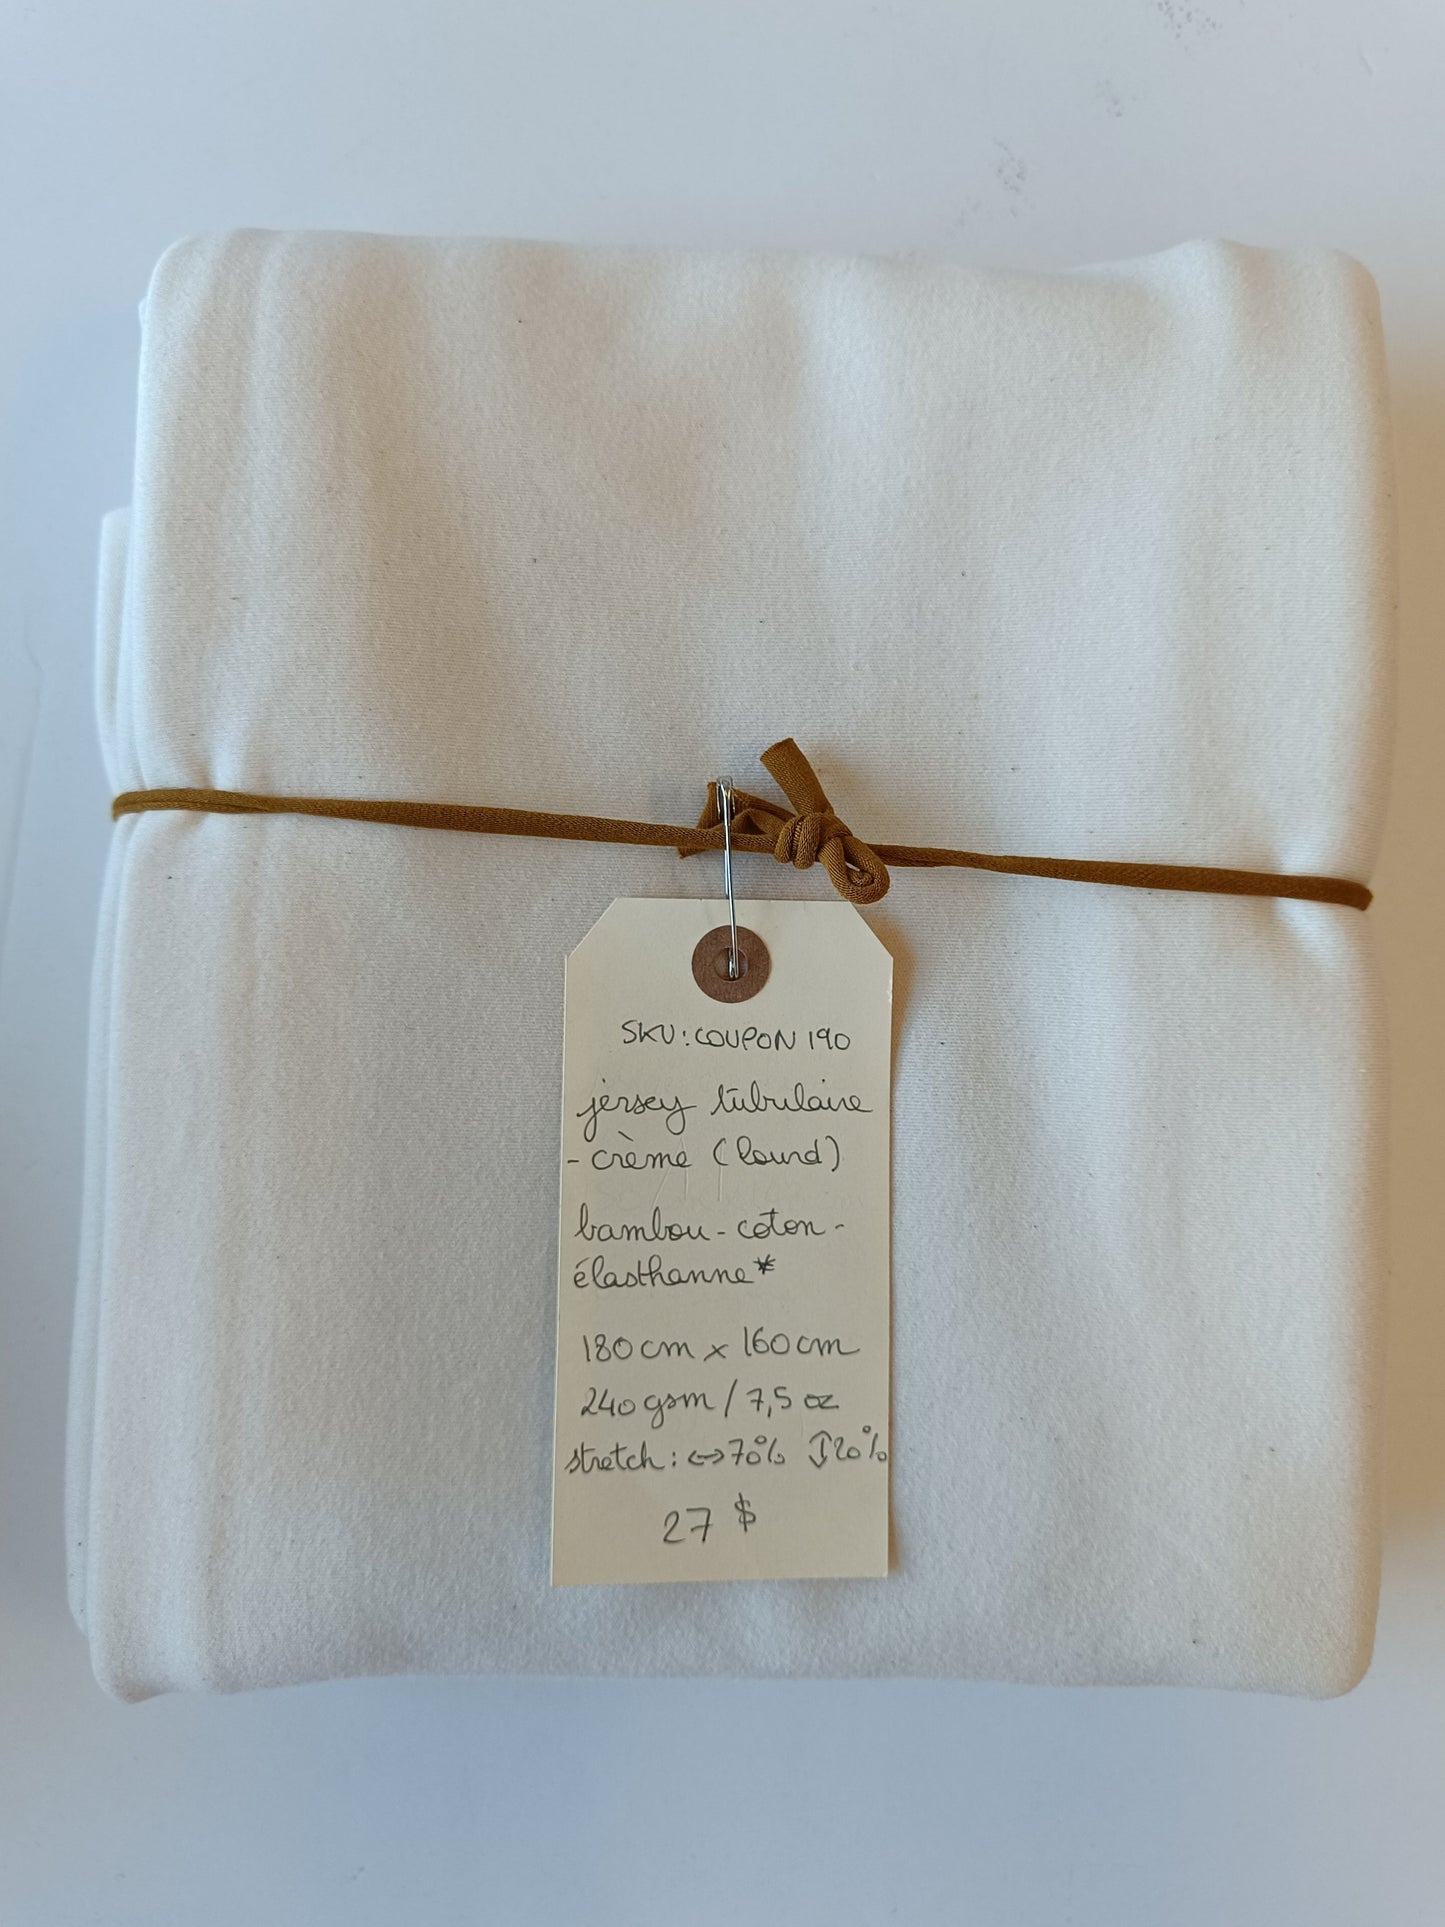 SKU: COUPON 190
jersey tubulaire
- crème (lourd)
bambou - coton -
élasthanne*
180 cm x 160 cm
240 gsm / 7,5 oz
stretch : ↔ 70% ↕ 20%
27 $